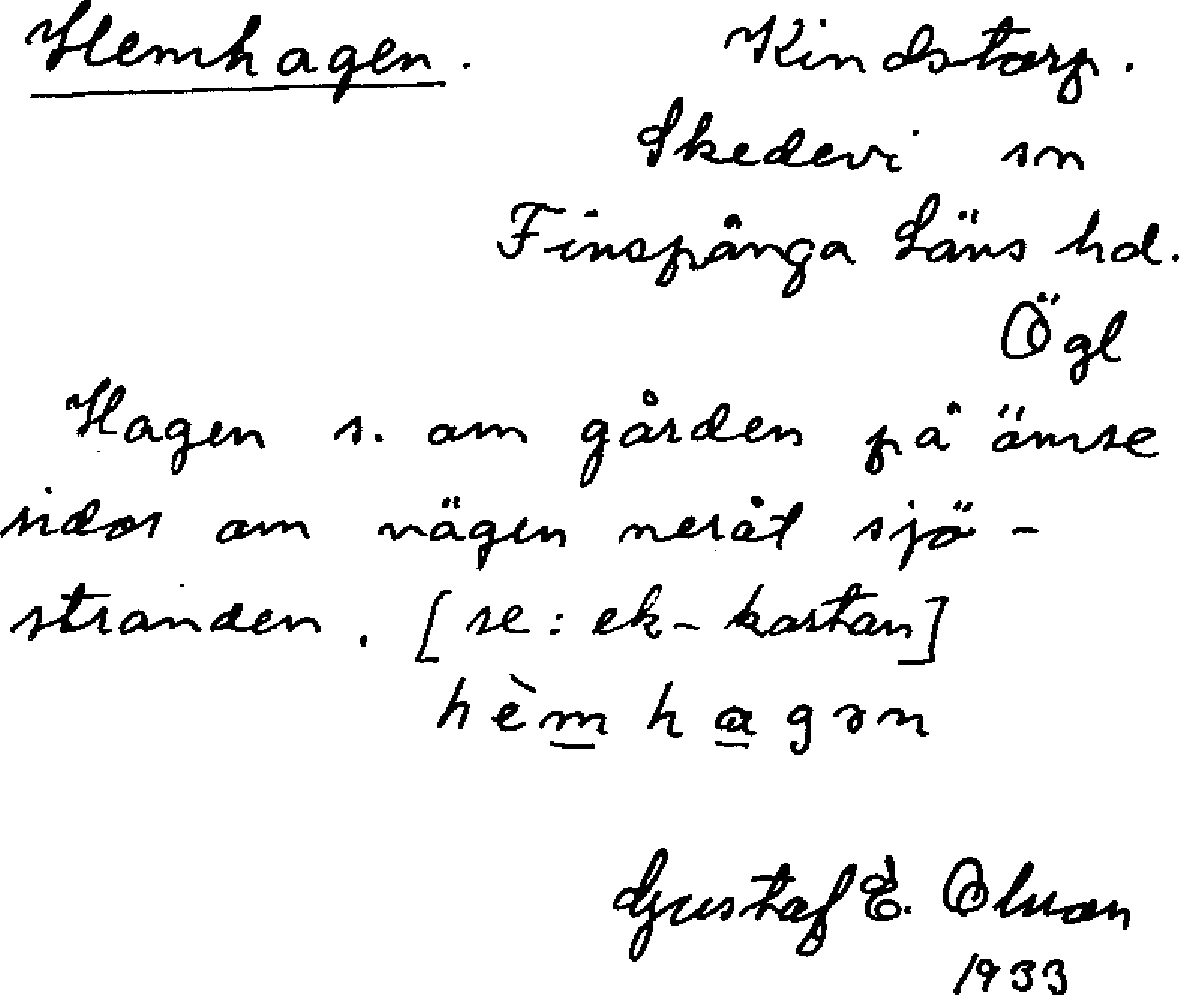 Hemhagen. Kindstorp.
Skedevi sn
Finspånga Läns hd.
Ögl
Hagen s. om gården på ömse
sidor om vägen neråt sjö-
stranden. [se: ek-kartan]
hèm hagən
Gustaf E. Olsson
1933